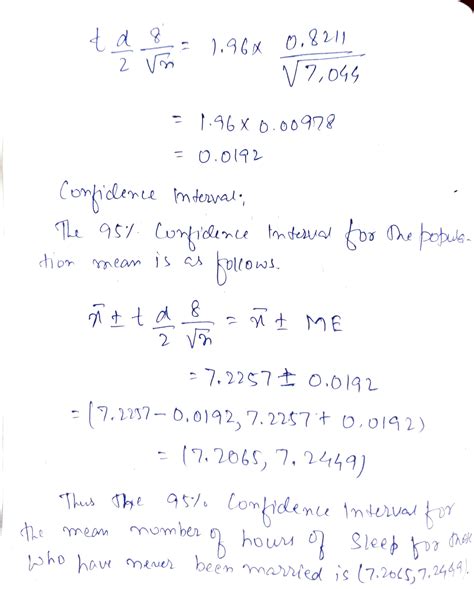 t α/2 s/√n = 1.96 × 0.8211/√7,044
= 1.96 × 0.00978
= 0.0192
Confidence interval:
The 95% Confidence Interval for the popula-
tion mean is as follows.
x̄ ± t α/2 s/√n = x̄ ± ME
= 7.2257 ± 0.0192
= (7.2257 - 0.0192, 7.2257 + 0.0192)
= (7.2065, 7.2449)
Thus the 95% Confidence Interval for
the mean number of hours of sleep for those
who have never been married is (7.2065, 7.2449).